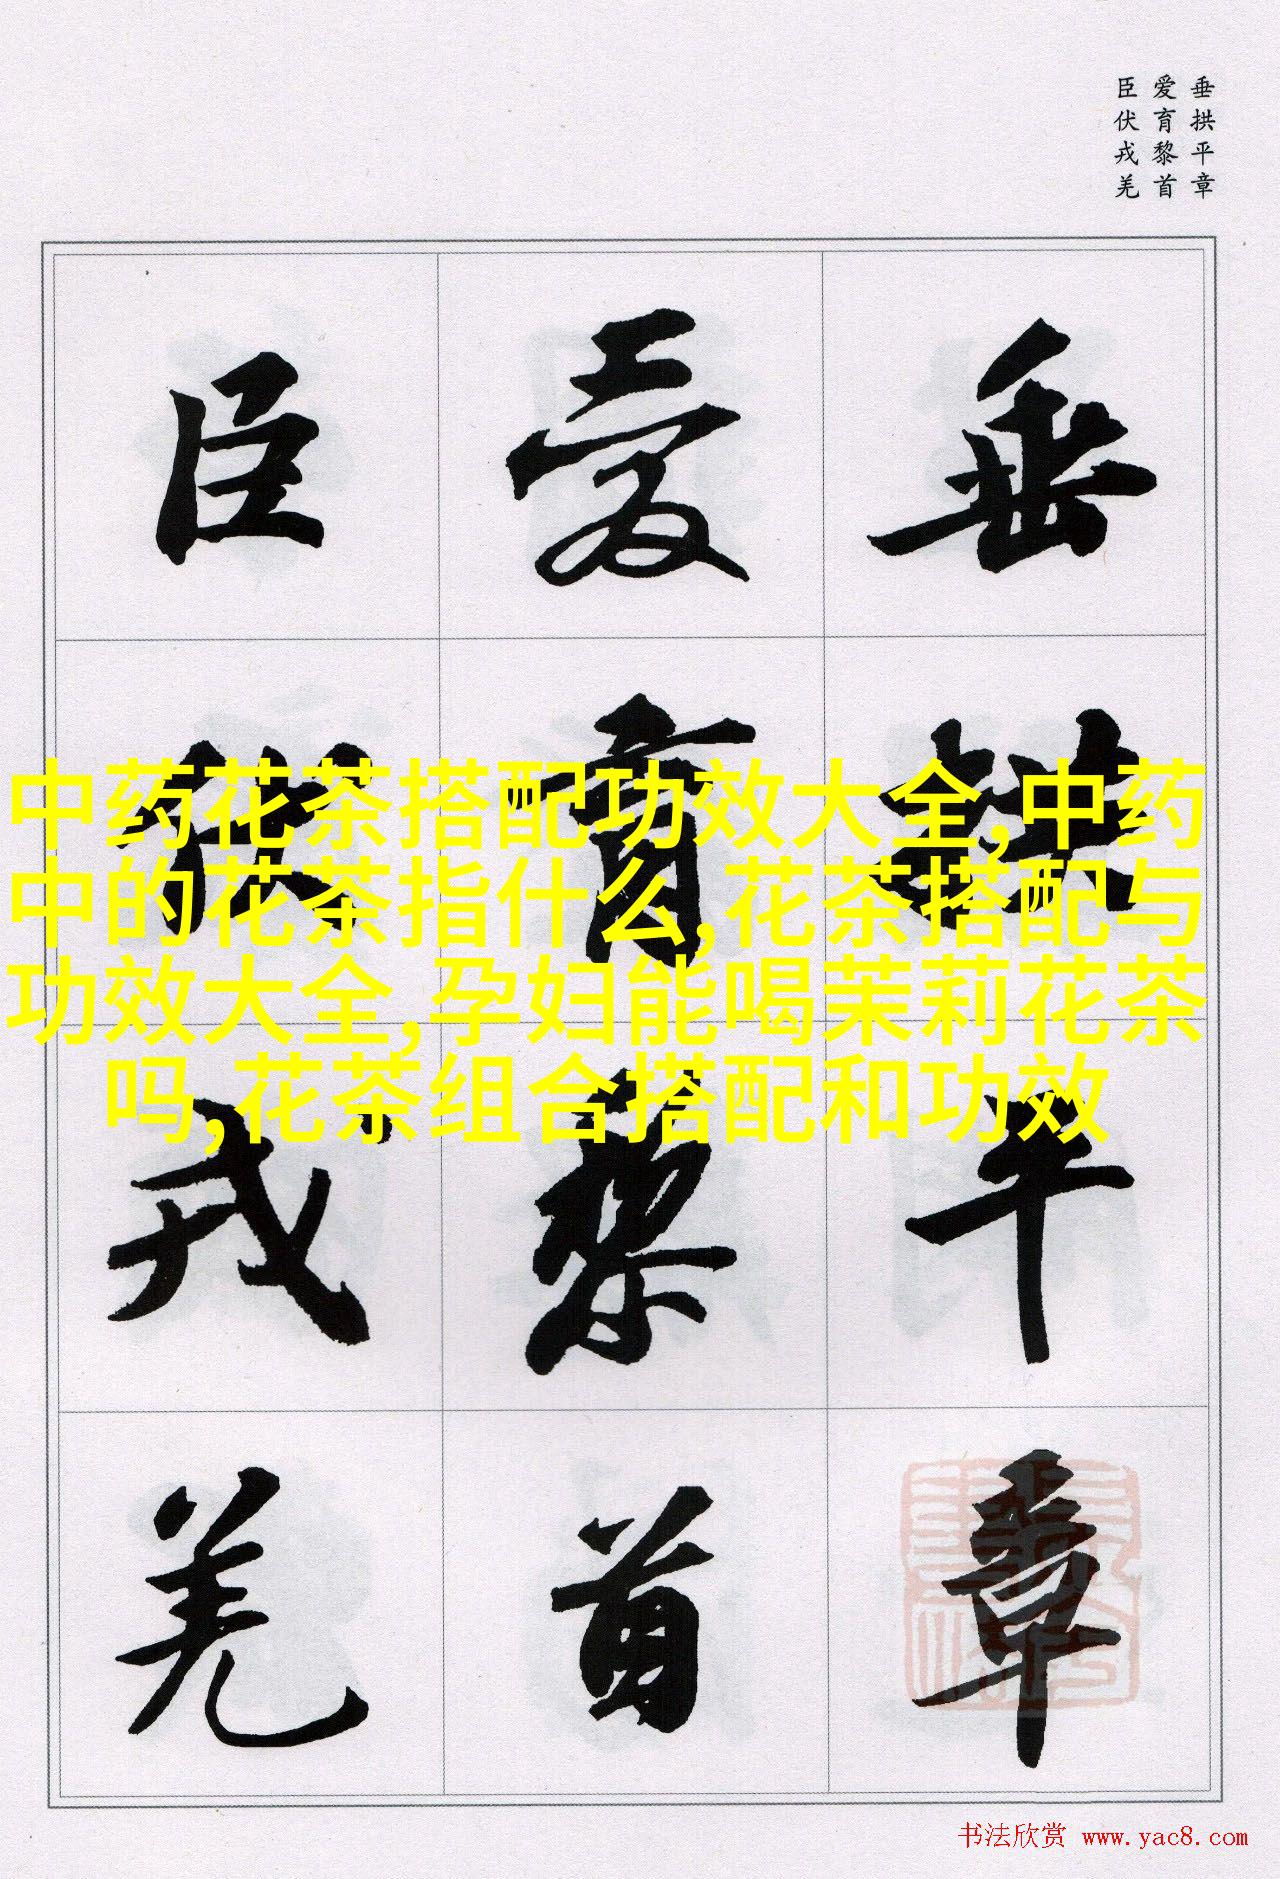 垂拱平章
爱育黎首
臣伏戎羌
垂拱平章
爱育黎首
臣伏戎羌
中药花茶搭配功效大全,中药
中的花茶指什么,花茶搭配与
功效大全,孕妇能喝茉莉花茶
吗,花茶组合搭配和功效
书法欣赏 www.yac8.com